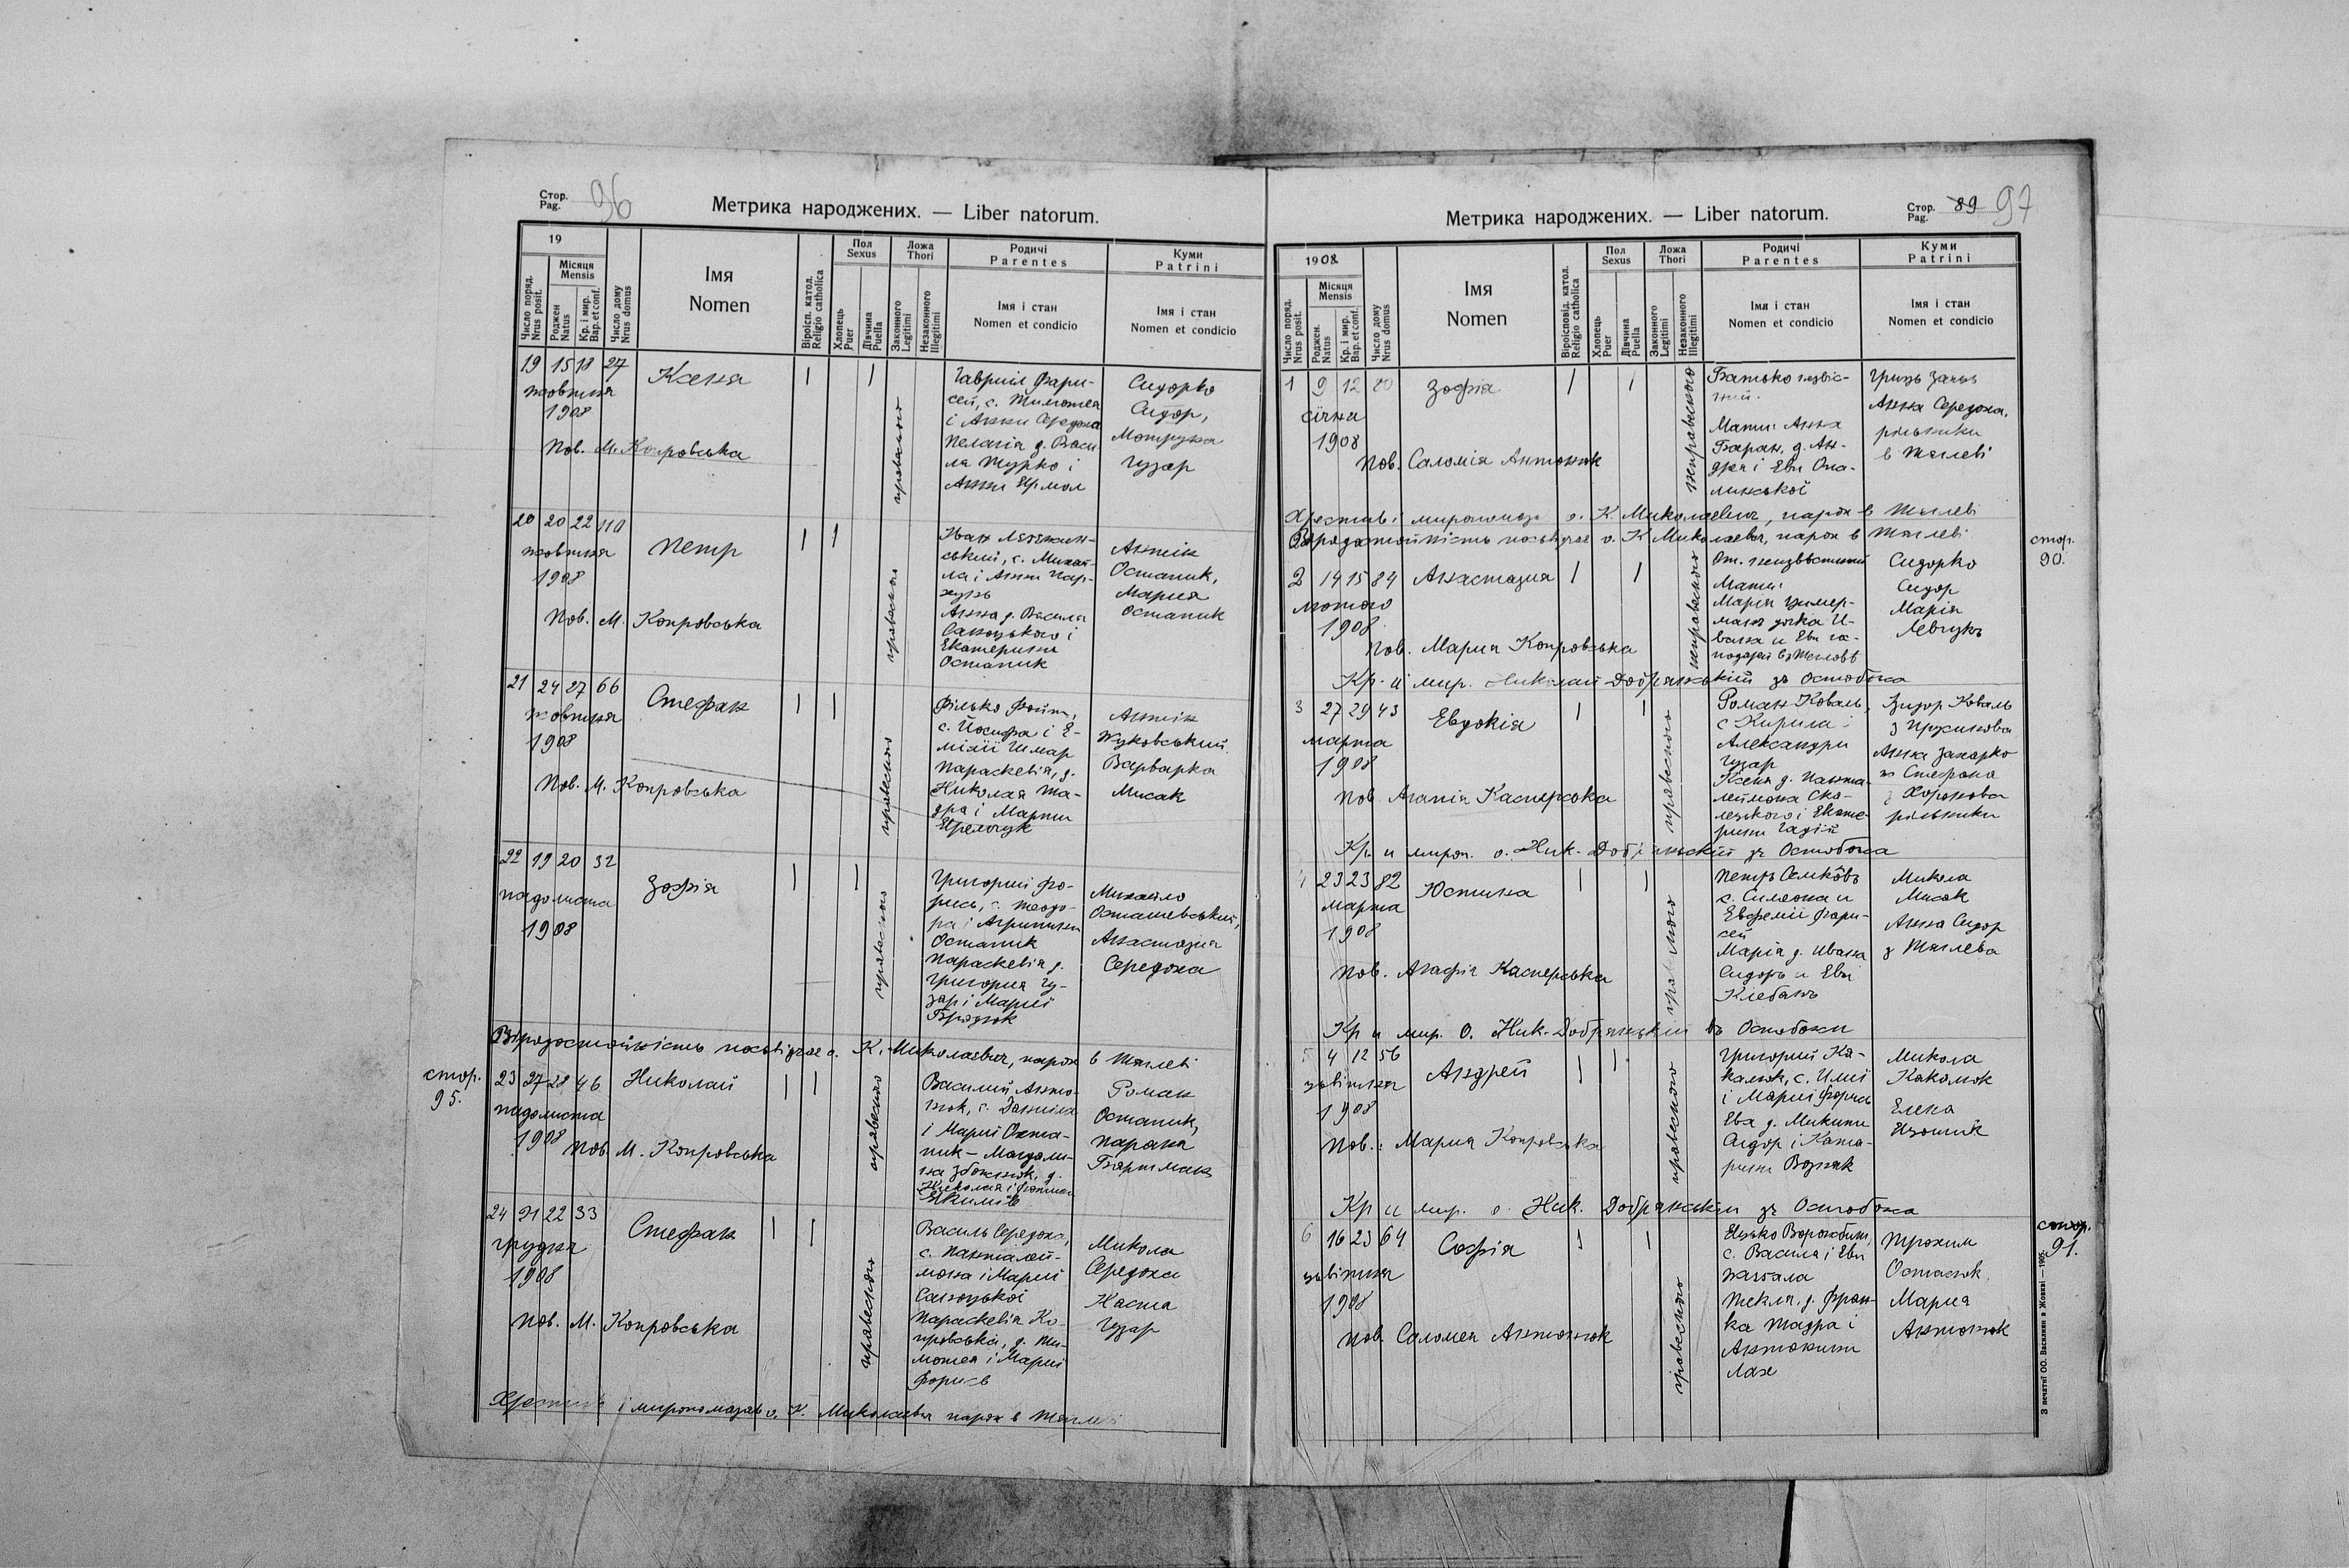 Стор.
Pag. 96
Метрика народжених. — Liber natorum.
19
Місяця
Mensis
Число поряд.
Nrus posit.
Роджен
Natus
Кр. і мир.
Bap. et conf.
Число дому
Nrus domus
Імя
Nomen
Віроісп. катол.
Religio catholica
Пол
Sexus
Хлопець
Puer
Дівчина
Puella
Ложа
Thori
Законного
Legitimi
Незаконного
Illegitimi
Родичі
Parentes
Імя і стан
Nomen et condicio
Куми
Patrini
Імя і стан
Nomen et condicio
19 15 18 27
жовтня
1908
Ксеня
Пов. М. Копровська
правесного
Гавриїл Фари-
сей, с. Тимотея
і Анни Середоха
Пелагія д. Васи
ля Турко і
Анни Ярмол
Сидорко
Сидор,
Мотрунка
Гузар
20 20 22 110
жовтня
1908
Петр
Пов. М. Копровська
правесного
Иван
ський, с. Михай-
ла і Анни
Анна д. Василя
і
Екатерини
Остапик
Антін
Остапик,
Мария
Остапик
21 24 27 66
жовтня
1908
Стефан
Пов. М. Копровська
правесного
Філько
с. Йосифа і Е-
мілії Шмар
Параскевія, д.
Николая Та-
дра і Марти
Антін
Жуковський.
Варварка
Мисак
22 19 20 32
падолиста
1908
Зофія
правесного
Григорий Фо-
рись, с. Теодо-
ра і Агрипини
Остапик
Параскевія д.
Григория Гу-
зар і Мариї
Михайло
Осташевський,
Анастазия
Середоха
Вірядостойність посвідчає о. К. Миколаєвич, парох в Тяглеві
стор.
95.
23 27 28 46
падолиста
1908
Николай
Пов. М. Копровська
правесного
Василий Анто-
нюк, с. Данила
і Мариї Оста-
пик - Магдали-
на д.
Николая і
Роман
Остапик,
Параня
24 21 22 33
грудня
1908
Стефан
Пов. М. Копровська
правесного
Василь Середоха,
с. Панталей-
мона і Мариї
Параскевія Ко-
провська, д. Ти-
мотея і Мариї
Форисв
Микола
Середоха
Настя
Гузар
Хрестив і миропомазав о. К. Миколаєвич парох в Тяглеві
Метрика народжених. — Liber natorum.
Стор.
Pag. 89 97
1908
Місяця
Mensis
Число поряд.
Nrus posit.
Роджен.
Natus
Кр. і мир.
Bap. et conf.
Число дому
Nrus domus
Імя
Nomen
Віроісповід. катол.
Religio catholica
Пол
Sexus
Хлопець
Puer
Дівчина
Puella
Ложа
Thori
Законного
Legitimi
Незаконного
Illegitimi
Родичі
Parentes
Імя і стан
Nomen et condicio
Куми
Patrini
Імя і стан
Nomen et condicio
1 9 12 80
січня
1908
Зофія
Пов. Саломія Антонюк
неправесного
Батько незвіс-
ний.
Мати: Анна
Баран, д. Ан-
дрея і Еви Опа-
линської
Гринь
Анна Середоха,
рільники
в Тяглеві
Хрестив і миропомаз. о. К. Миколаєвич, парох в Тяглеві
Вірядостойність посвідчає о. К. Миколаєвич, парох в Тяглеві
стор.
90.
2 14 15 84
лютого
1908
Анастазия
Пов. Мария Копровська
неправесного
От. неизвѣстний
Мати:
Марія Цимер-
манъ дочка И-
вана и Еви
Сидорко
Сидор
Марія
Левчукъ
Кр. и мир. Николай Добрянський зъ Остобожа
3 27 29 43
марта
1908
Евдокія
Пов Агапія Касперська
правесного
Роман Коваль,
с Кирила і
Александри
Гузар
Ксеня д. Панта-
леймона Ско-
і Екате-
рини
Изидор Коваль
з
Анна Захарко
ж Стефана
з Хоронова
рільники
Кр. и мироп. о. Ник. Добрянський зъ Остобожа
4 23 23 82
марта
1908
Юстина
Пов. Агафія Касперська
правесного
Петръ Сеньковъ
с. Симеона и
Евфемії Фари-
сей
Марія д. Ивана
Сидоръ и Еви
Клебанъ
Микола
Мисак
Анна Сидор
з Тяглева
Кр и мир. о. Ник. Добрянський въ Остобожи
5 4 12 56
цвітня
1908
Андрей
Пов.: Мария Копровська
правесного
Григорий Ка-
калюк, с. Илиї
і Мариї Форись
Ева д. Микити
Сидор і Ката-
рини Возняк
Микола
Какалюк
Елена
Кр и мир. о. Ник. Добрянський зъ Остобожа
стор.
91.
6 16 23 64
цвітня
1908
Софія
Пов Саломея Антонюк
правесного
Яцько Воробит,
с. Василя і Еви
Текля, д. Фран-
ка Тадра і
Антонини
Лах
Трохим
Остапюк.
Мария
Антонюк
З печатні ОО. Василиян в Жовкві — 1905.